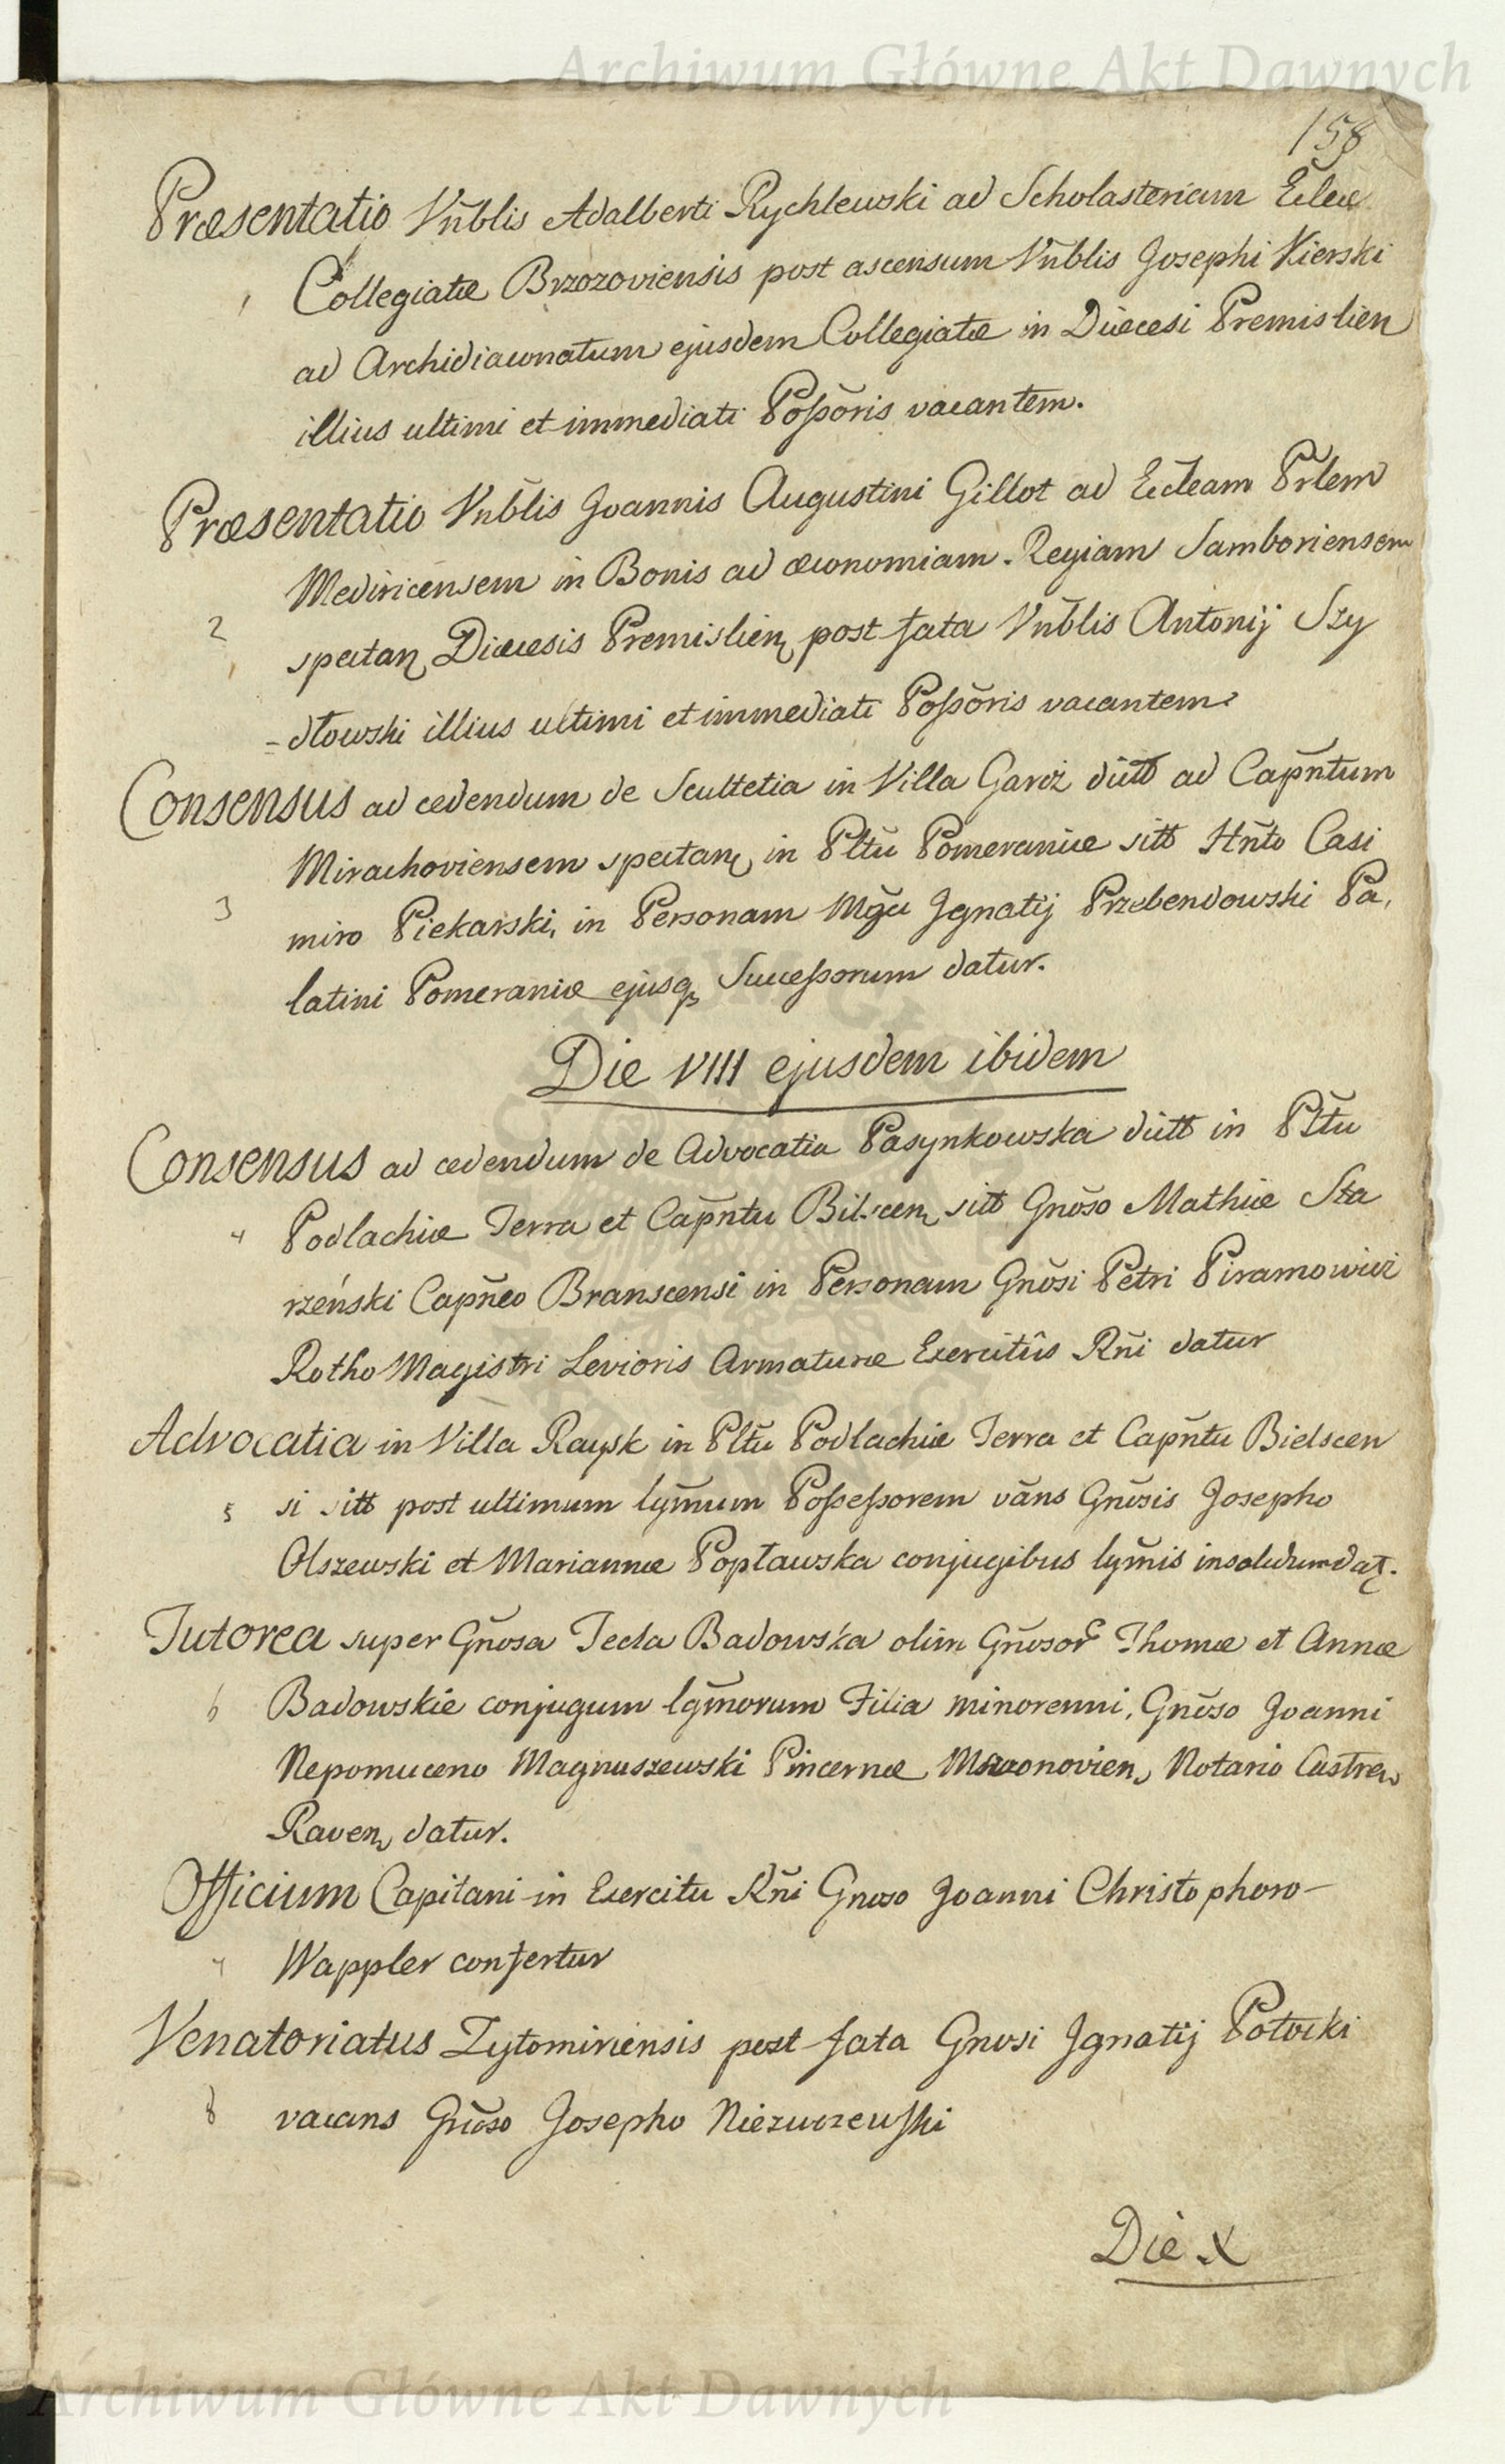 Archiwum Główne Akt Dawnych
158
Præsentatio Vñblis Adalberti Rychlewski ad Scholasteriam Eclæ
1 Collegiatæ Brzozoviensis post ascensum Vñblis Josephi Kierski
ad Archidiaconatum ejusdem Collegiatæ in Diæcesi Premislien
illius ultimi et immediati Poßoris vacantem.
Præsentatio Vñblis Joannis Augustini Gillot ad Eccleam Prlem
Medinicensem in Bonis ad œconomiam Regiam Samboriensem
2 spectan Diæcesis Premislien post fata Vñblis Antonij Szy
-dłowski illius ultimi et immediati Poßoris vacantem
Consensus ad cedendum de Scultetia in Villa Garcz dictt ad Capñtum
Mirachoviensem spectan in Pltũ Pomeraniæ sitt Hñto Casi
3 miro Piekarski, in Personam Mg̃ci Jgnatij Przebendowski Pa,
latini Pomeraniæ ejusq Succeßorum datur.
Die VIII ejusdem ibidem
Consensus ad cedendum de Advocatia Pasynkowska dictt in Pltũ
4 Podlachiæ Terra et Capñtu Bilscen sitt Gnõso Mathiæ Sta
rzeński Capñeo Branscensi in Personam Gnõsi Petri Piramowicz
Rotho Magistri Levioris Armaturæ Exercitûs Rñi datur
Advocatia in Villa Raysk in Pltũ Podlachiæ Terra et Capñtu Bielscen
5 si sitt post ultimum lg̃mum Poßeßorem vãns Gnõsis Josepho
Olszewski et Mariannæ Popławska conjugibus lg̃mis insolidum dat.
Tutorea super Gñosa Tecla Badowska olim Gñosor Thomæ et Annæ
6 Badowskie conjugum lg̃morum Filia minorenni, Gnõso Joanni
Nepomuceno Magnuszewski Pincernæ Mazonovien, Notario Castren
Raven, datur.
Officium Capitani in Exercitu Rñi Gnoso Joanni Christophoro-
7 Wappler confertur
Venatoriatus Zytomiriensis post fata Gnosi Jgnatij Potocki
8 vacans Gñoso Josepho Niezwrzewski
Die X
Archiwum Główne Akt Dawnych